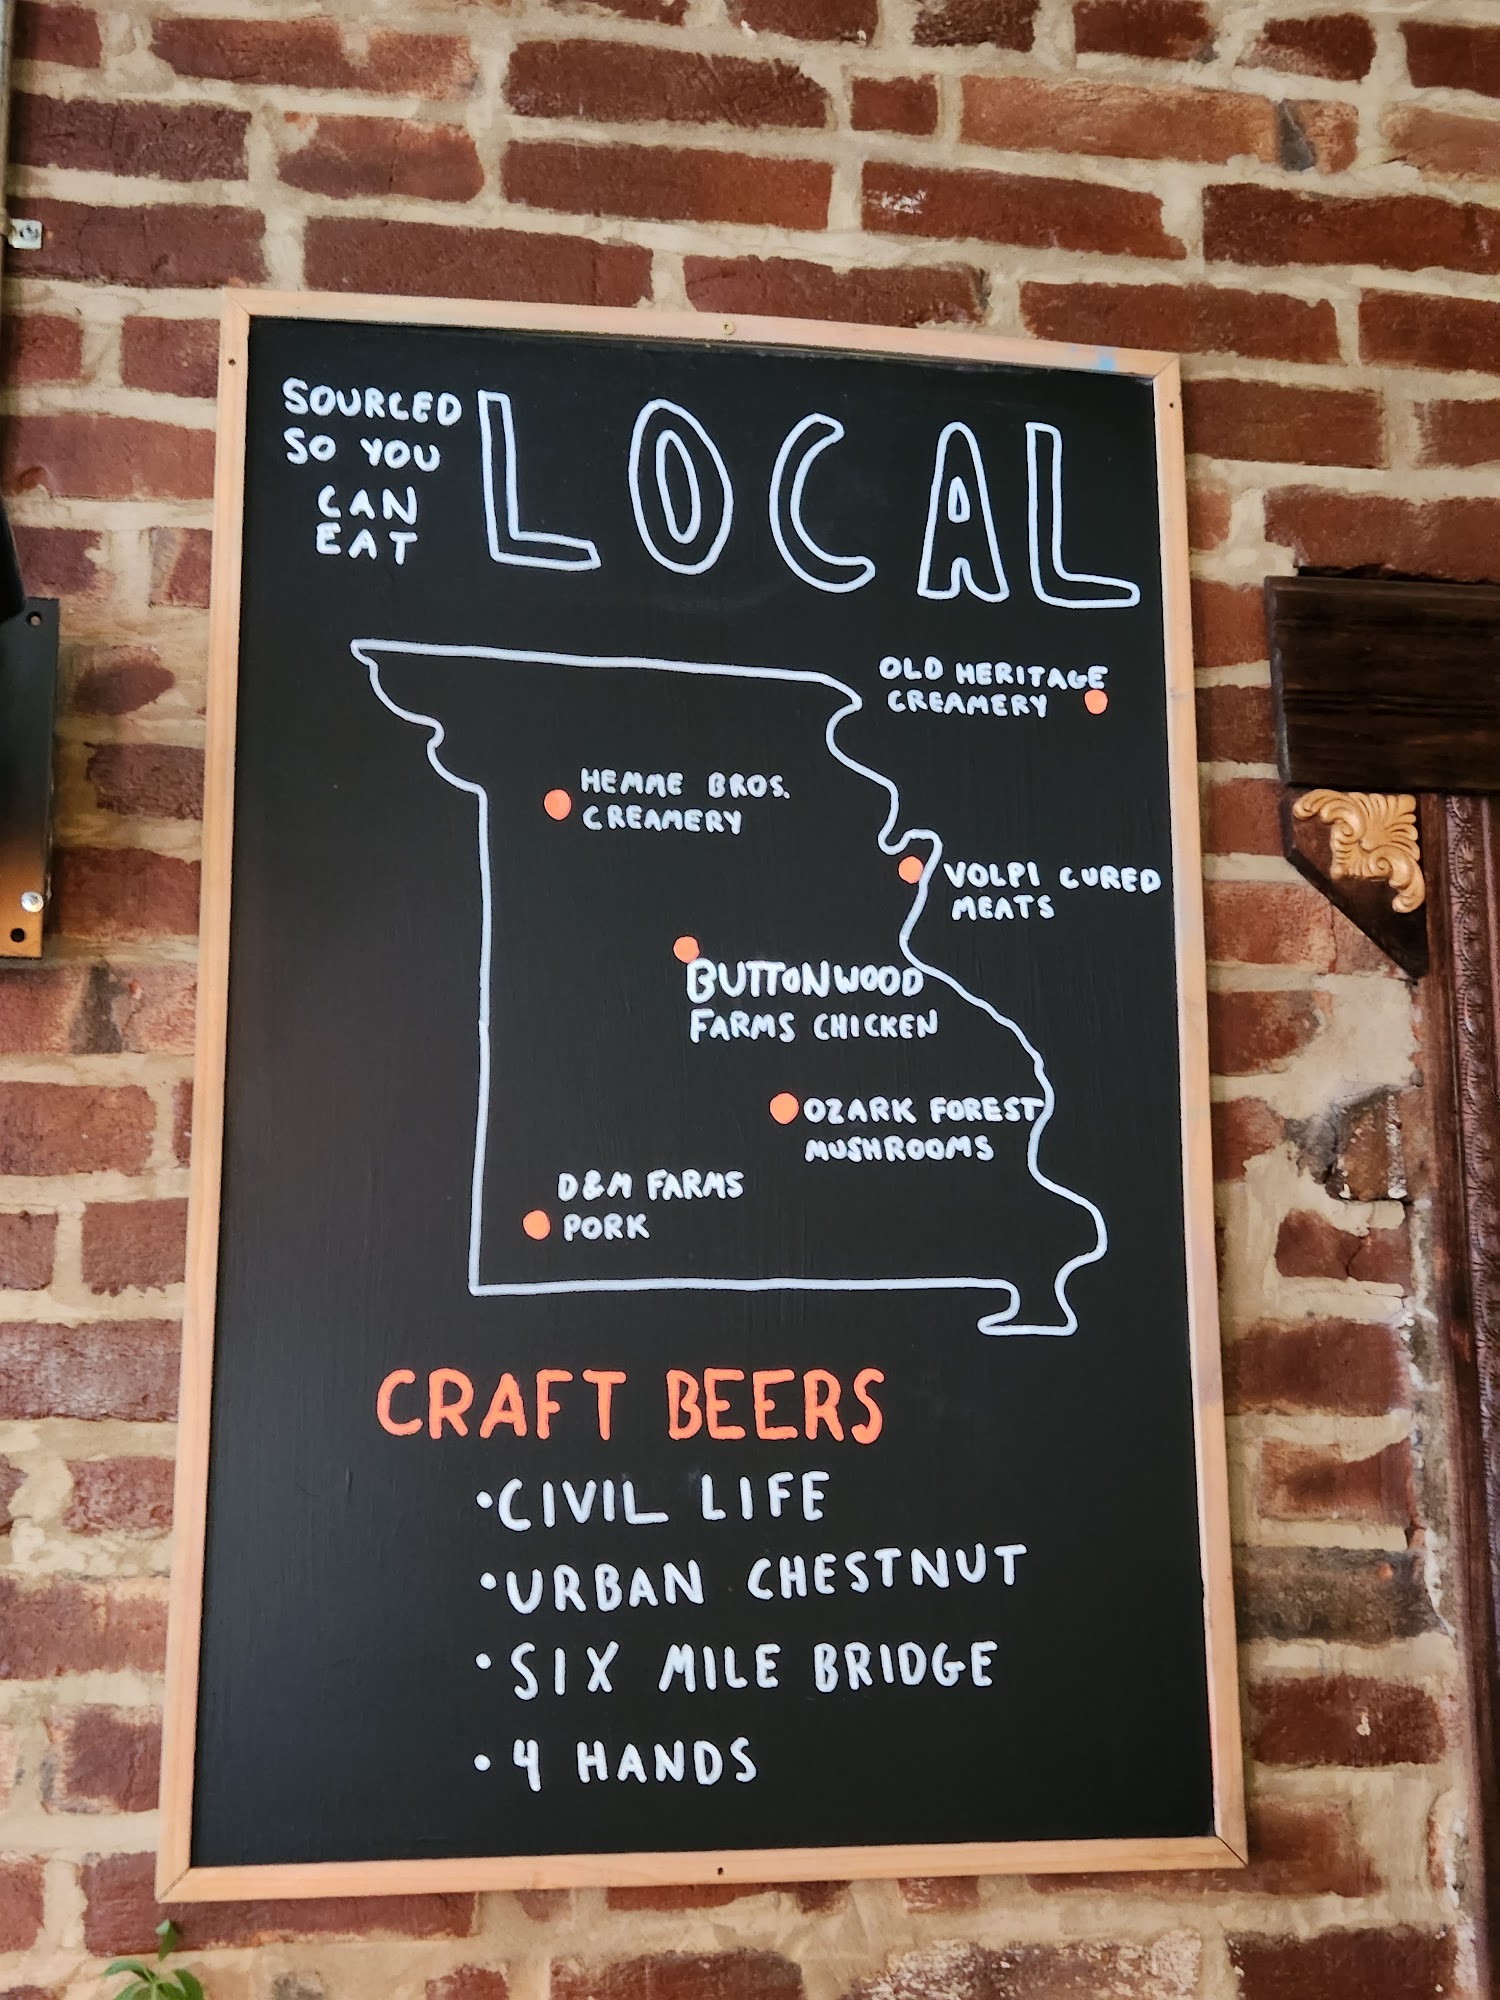 SOURCED
SO YOU
CAN
EAT
LOCAL
OLD HERITAGE
CREAMERY
HEMME BROS.
CREAMERY
VOLPI CURED
MEATS
BUTTONWOOD
FARMS CHICKEN
OZARK FOREST
MUSHROOMS
D&M FARMS
PORK
CRAFT BEERS
• CIVIL LIFE
• URBAN CHESTNUT
• SIX MILE BRIDGE
• 4 HANDS